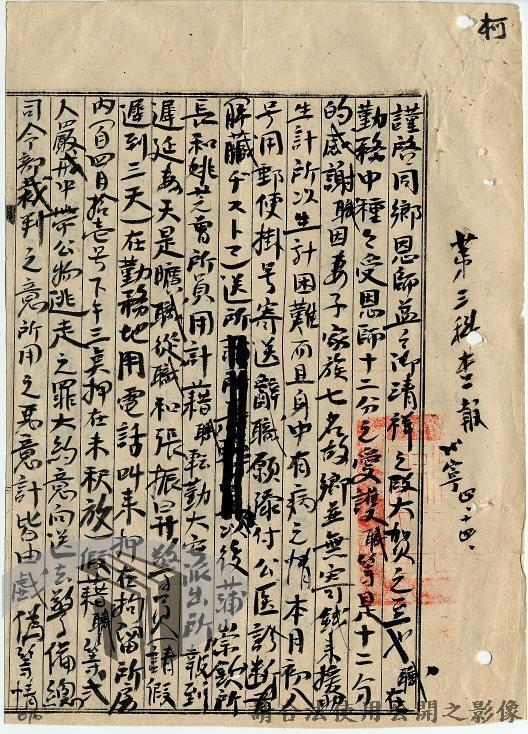 柯
第三科查報
四、十四、
謹啓同鄉恩師益々御清祥之段大賀之至也職在
勤務中種々受恩師十二分之愛護職等是十二分
的感謝職因妻子家族七名故鄉並無寄錢來接濟
生計所以生計困難而且身中有病之情本月初八
号用郵便掛号寄送辭職願添付公医診斷書
解職 送所 以後蒲崇欽所
長和姚芝曾所員用計藉職転勤大 派出所 報到
遲延 天是曠職從職和張振昇 請假
遲到三天)在勤務地用電話叫來押在拘留所房
內百四日拾壱号下午三点押在未釈放)假藉職等弍
人嚴戒中帶公物逃走之罪大約意向送去警備總
司令部裁判之意所用之惡意計皆由戲偽等情
請合法使用公開之影像